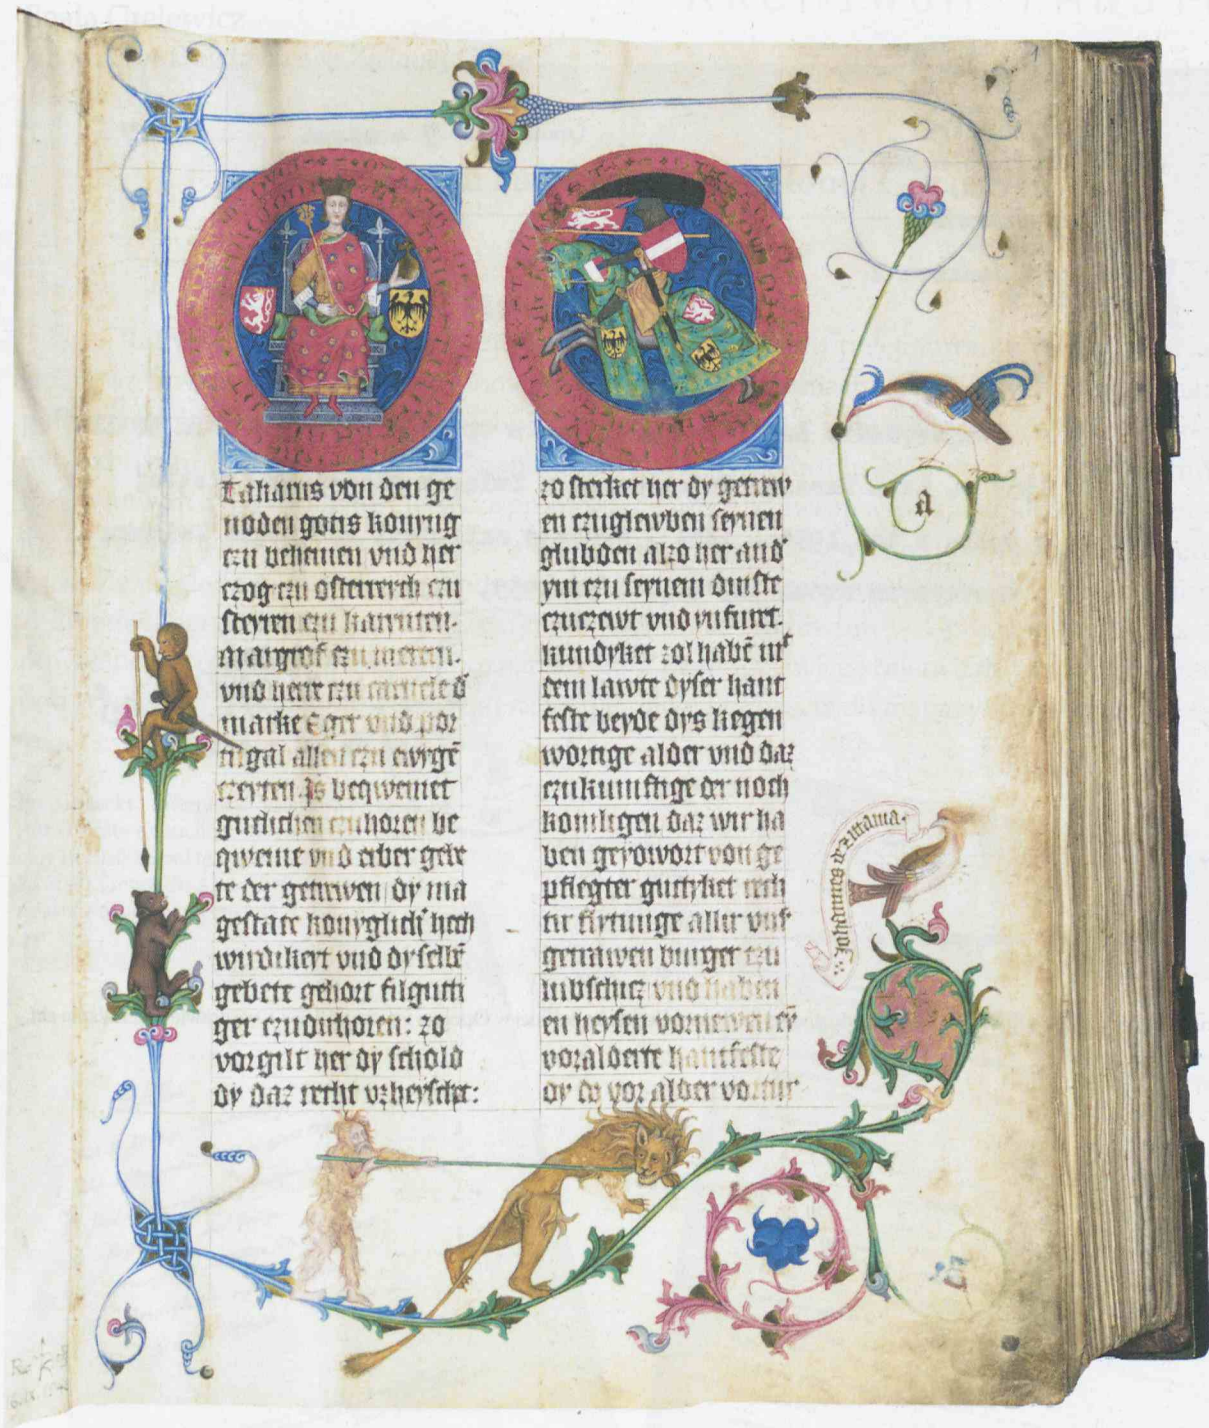 Takarus von den ge
noden gotis konyng
czu behemen vnd her
czog czu osterreych czu
steyren czu karnten.
margrof czu meren.
vnd herre czu d̄
marke Eger vnd por
tigal allen czu ewygē
czeyten. Js beqwemet
gutlichen czuhoren be
qweme vnd erber gebe
te der getrewen dy ma
gestate konyglich hech
wirdikeit vnd dyselbē
gebete gehort filguti
ger czuduhoren: zo
vorgilt her dy schold
dy daz recht vzheyschet:
zo sterket her dy getrew
en czuglewben seynen
glubden alzo her and
ym czu seynem dinste
czuczewt vnd ynfuret.
kundyket zol habē mit
dem lawte dyser hant
feste beyde dys kegen
wortige alder vnd daz
czukunftige der noch
komligen daz wir ha
ben gevowort von ge
pflegter gutyket rech
tir allir vnsˢ
getrawen burger czu
vnd haben
en heysen vornewen
voralderte hantfeste
dy do vor alder
a
Johannes de zitauia
1